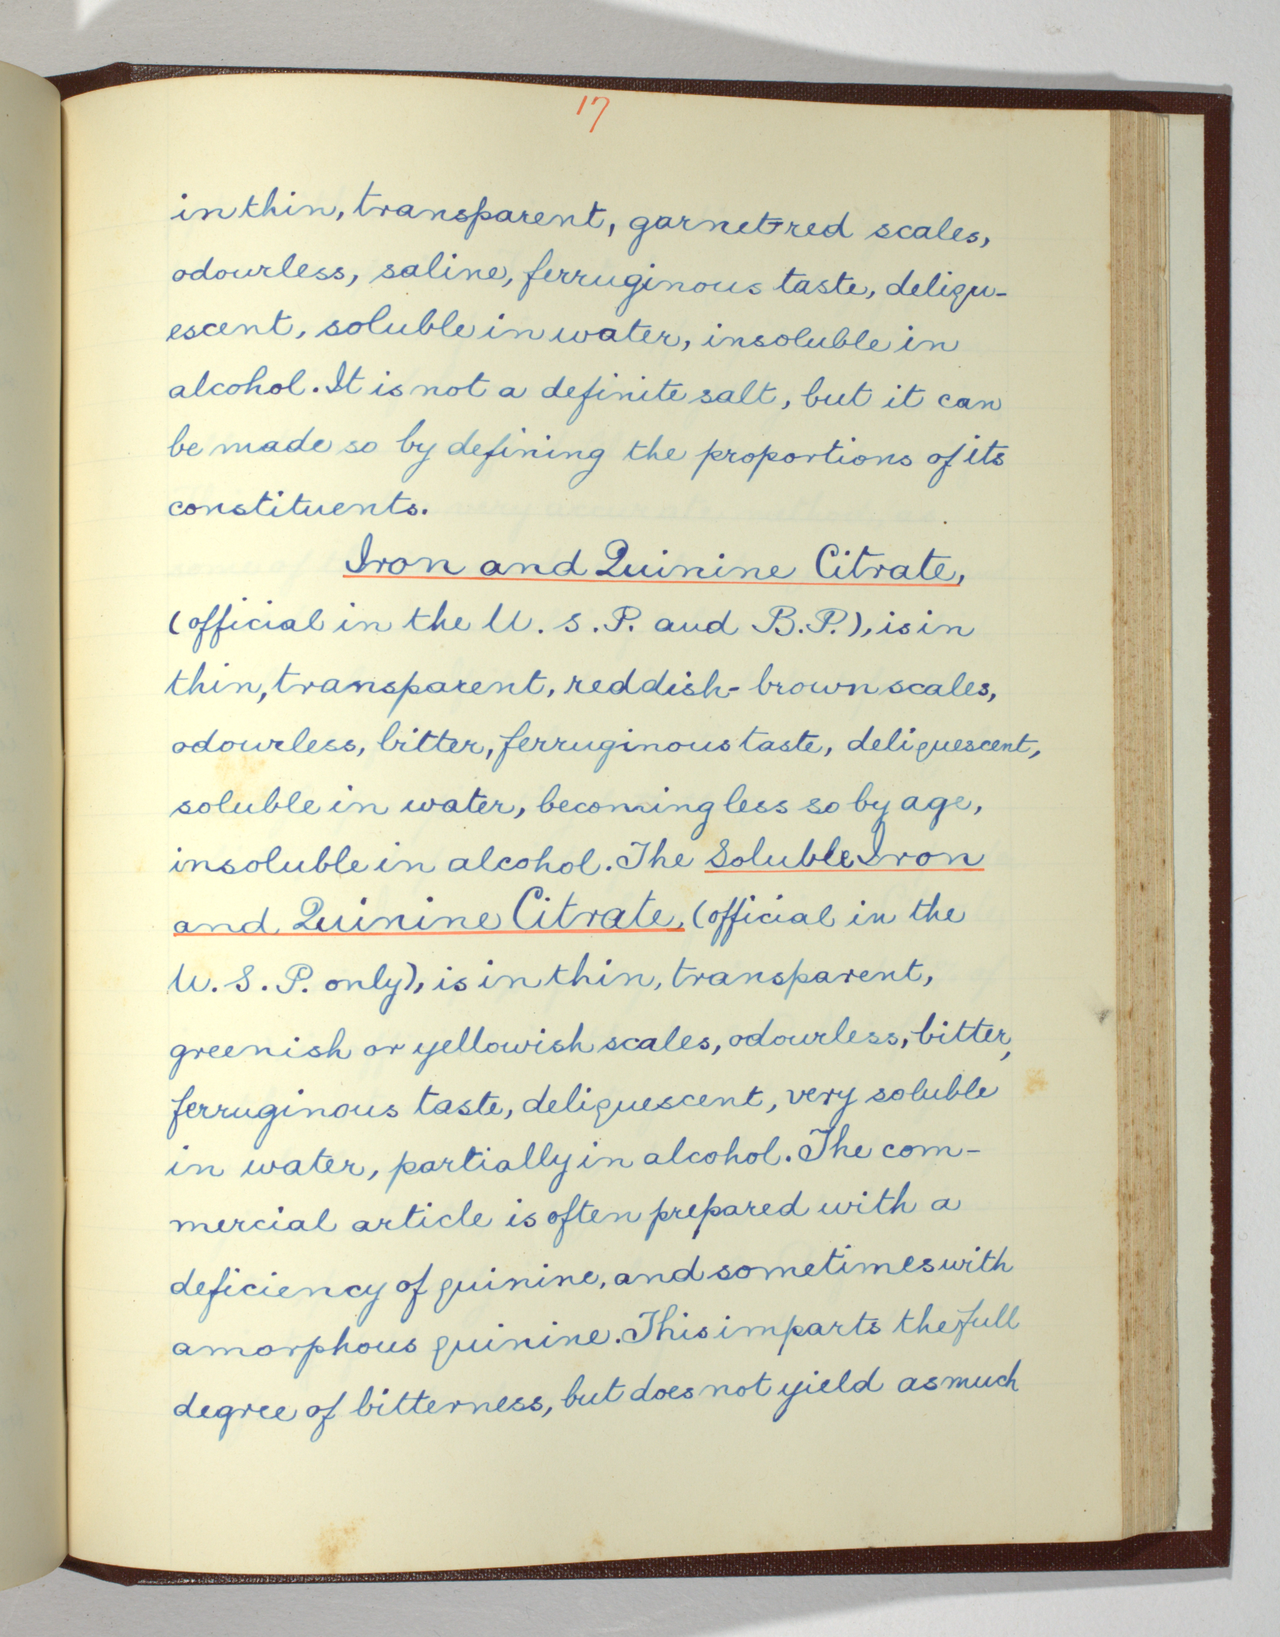 17
in thin, transparent, garnet-red scales,
odourless, saline, ferruginous taste, deliqu-
escent, soluble in water, insoluble in
alcohol. It is not a definite salt, but it can
be made so by defining the proportions of its
constituents.
Iron and Quinine Citrate,
(official in the U. S. P. and B. P.), is in
thin, transparent, reddish-brown scales,
odourless, bitter, ferruginous taste, deliquescent,
soluble in water, becoming less so by age,
insoluble in alcohol. The Soluble Iron
and Quinine Citrate, (official in the
U. S. P. only), is in thin, transparent,
greenish or yellowish scales, odourless, bitter,
ferruginous taste, deliquescent, very soluble
in water, partially in alcohol. The com-
mercial article is often prepared with a
deficiency of quinine, and sometimes with
amorphous quinine. This imparts the full
degree of bitterness, but does not yield as much